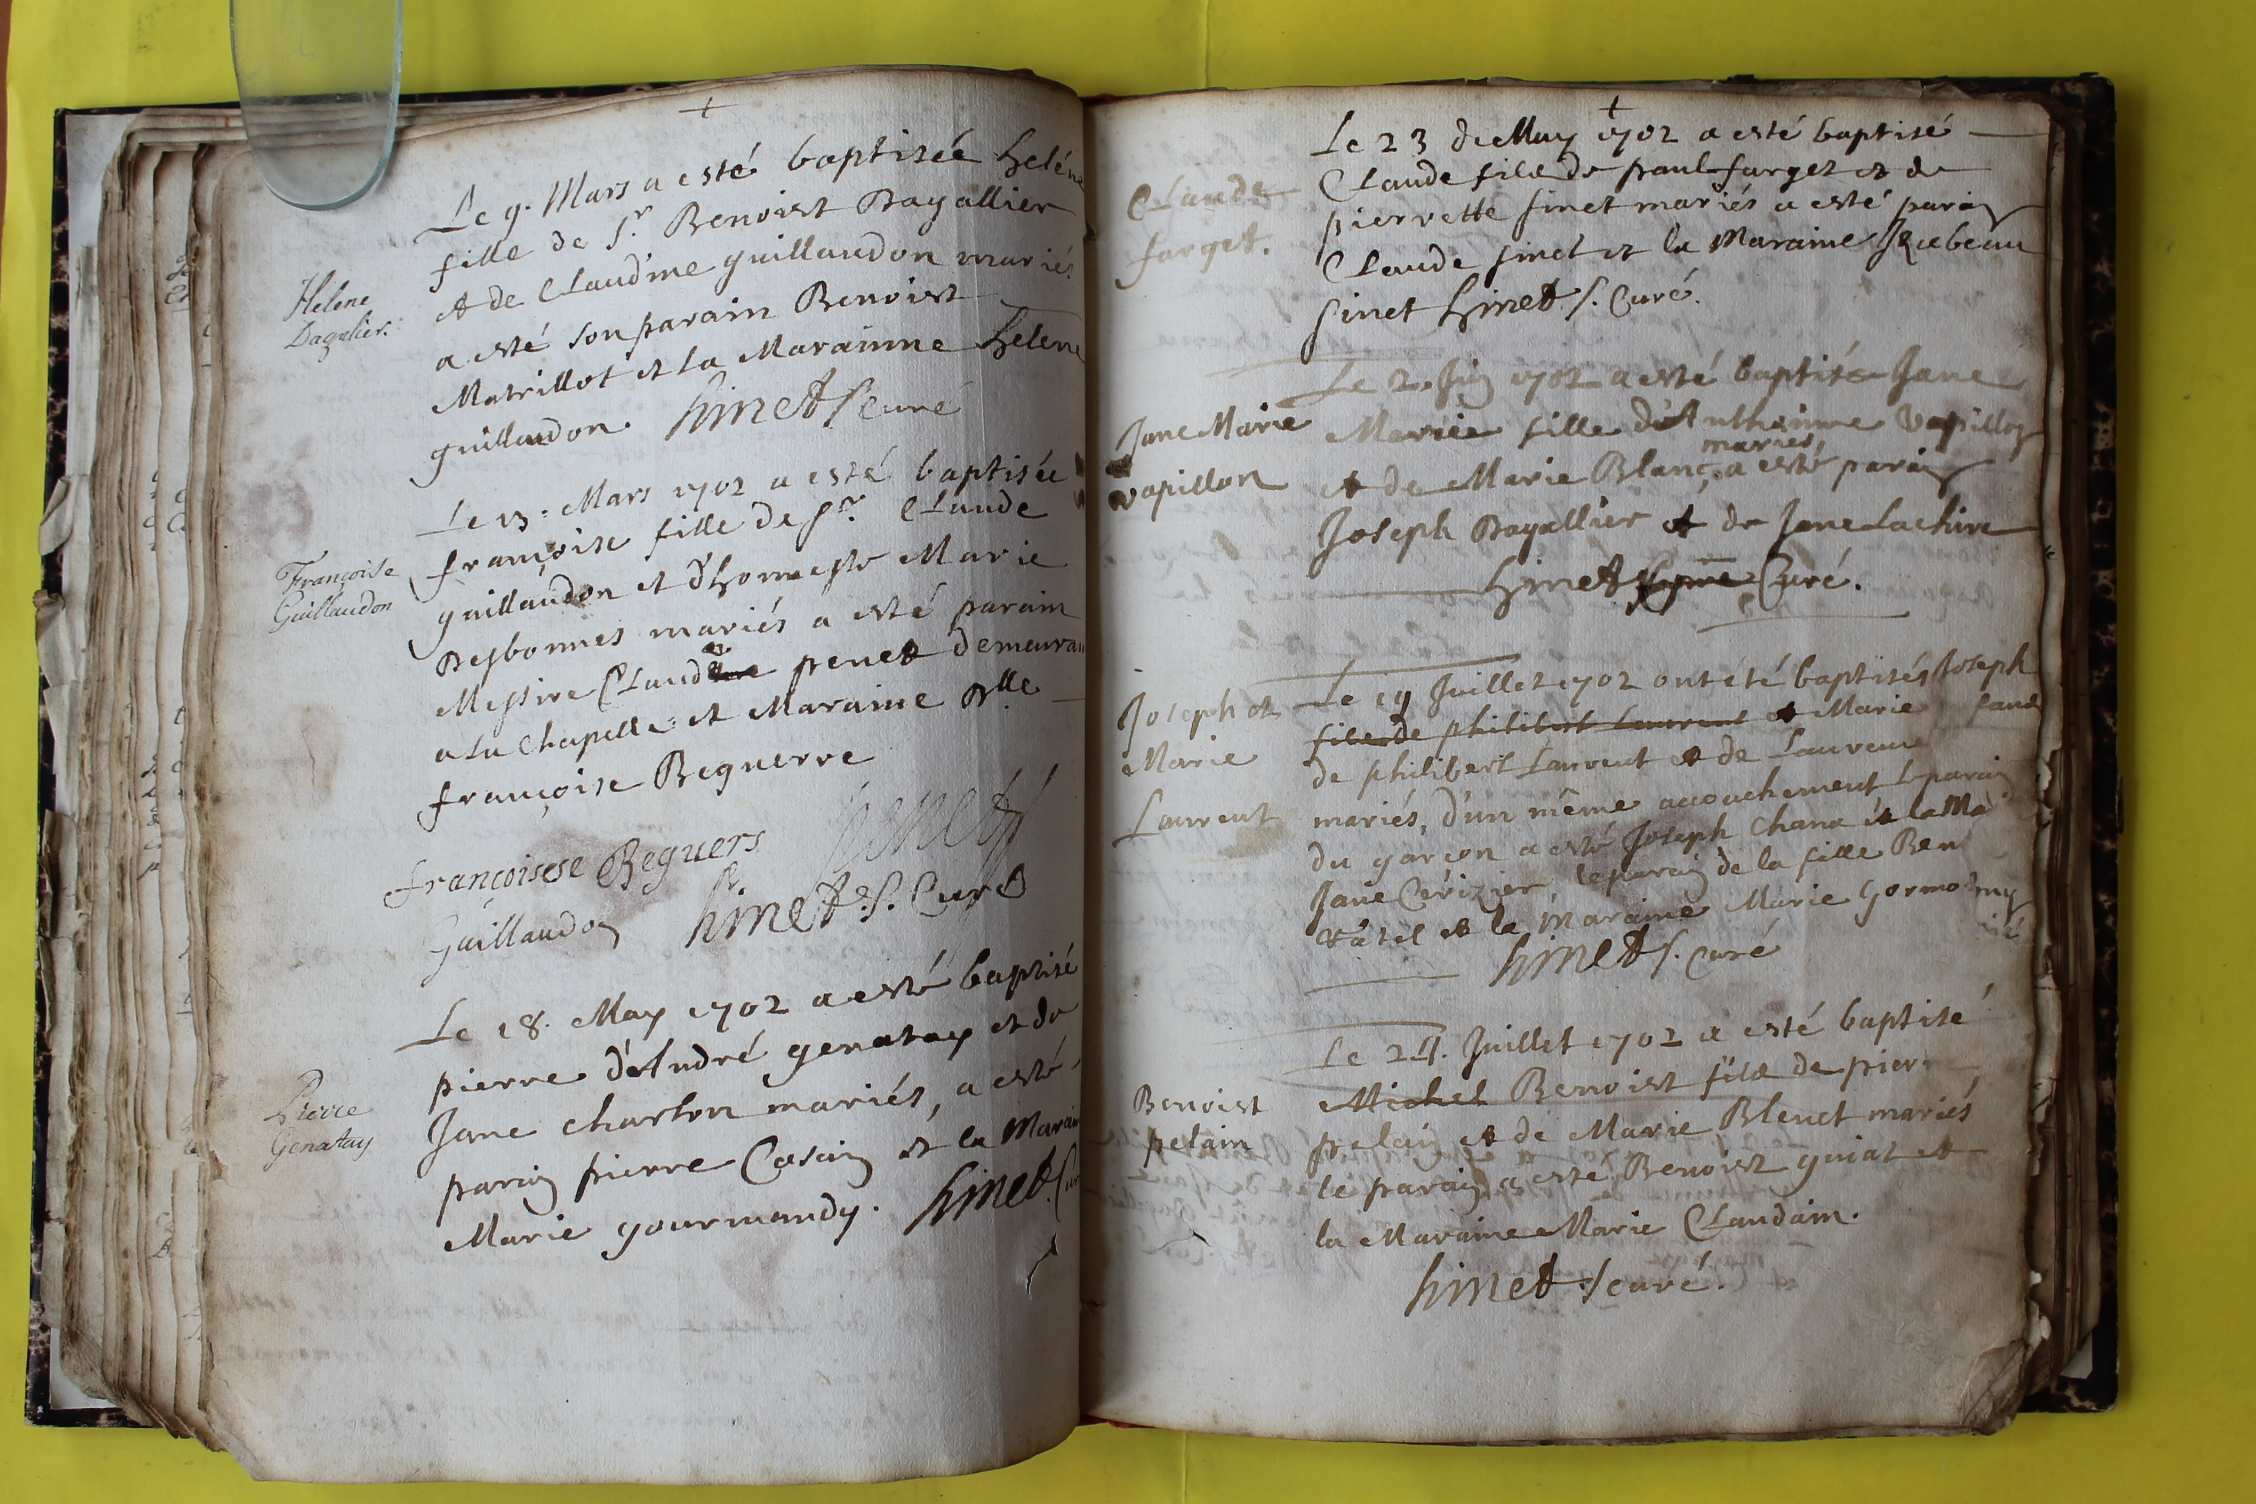 Le 9. Mars a esté baptisée heléne
fille de Sr. Benoist Dagallier
et de Claudine guillaudon mariés
Helene
Dagalier.
a esté son parain Benoist
Matrillot et la Marainne helene
guillaudon. hinet S curé
Le 13. Mars 1702 a esté baptisée
françoise fille de Sr. Claude
Françoise
Guillaudon
guillaudon et d'honneste Marie
Desbonnes mariés a esté parain
Messire Claude penet demeurant
a la Chapelle et Maraine Dlle
françoise Beguerre
françoisse Beguers penet
Guillaudon hinet. S. Curé
Le 18. May 1702 a esté baptisé
pierre d'André genatay et de
Pierre
Genatay
Jane charton mariés, a esté
parain pierre Casain et la Maraine
Marie gourmandy. hinet. Curé
Le 23 de May 1702 a esté baptisé
Claude
farget.
Claude filz de paul farget et de
pierrette Sinet mariés a esté parain
Claude Sinet et la Maraine Izabeau
Sinet hinet S. Curé.
Le 2. Juin 1702 a esté baptisée Jane
Jane Marie
vapillon
Mariee fille d'Anthoinne Vapillon
et de Marie Blanc mariés, a esté parain
Joseph Dagallier et de Jane Lachize
hinet Curé.
Le 19 Juillet 1702 ont été baptisés Joseph
Joseph et
Marie
Laurent
filz de philibert Laurent et Marie
de philibert Laurent et de Laurence
mariés, d'un même accouchement le parain
du garçon a esté Joseph Chana et la Ma
Jane Cérizier, le parain de la fille Ben
et la maraine Marie
hinet S. curé
Le 24. Juillet 1702 a esté baptisé
Benoist
pelain
Michel Benoist filz de pierre
pelain et de Marie Blenet mariés
le parain a esté Benoist guiat et
la Maraine Marie Claudain.
hinet S curé.